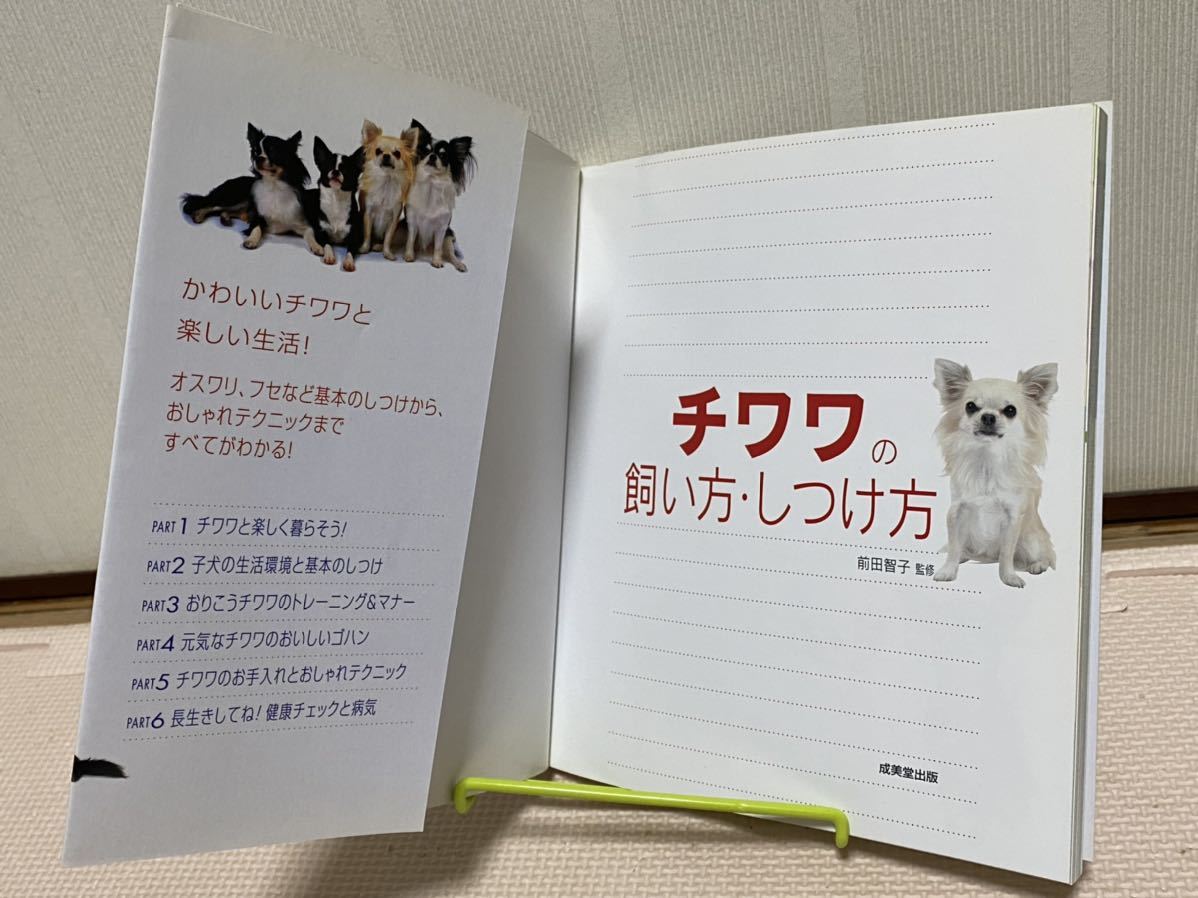 かわいいチワワと
楽しい生活!
オスワリ、フセなど基本のしつけから、
おしゃれテクニックまで
すべてがわかる!
PART1 チワワと楽しく暮らそう!
PART2 子犬の生活環境と基本のしつけ
PART3 おりこうチワワのトレーニング&マナー
PART4 元気なチワワのおいしいゴハン
PART5 チワワのお手入れとおしゃれテクニック
PART6 長生きしてね! 健康チェックと病気
チワワの
飼い方・しつけ方
前田智子 監修
成美堂出版